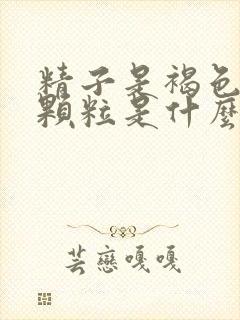 精子是褐色
顆粒是什麼
芸戀嘎嘎